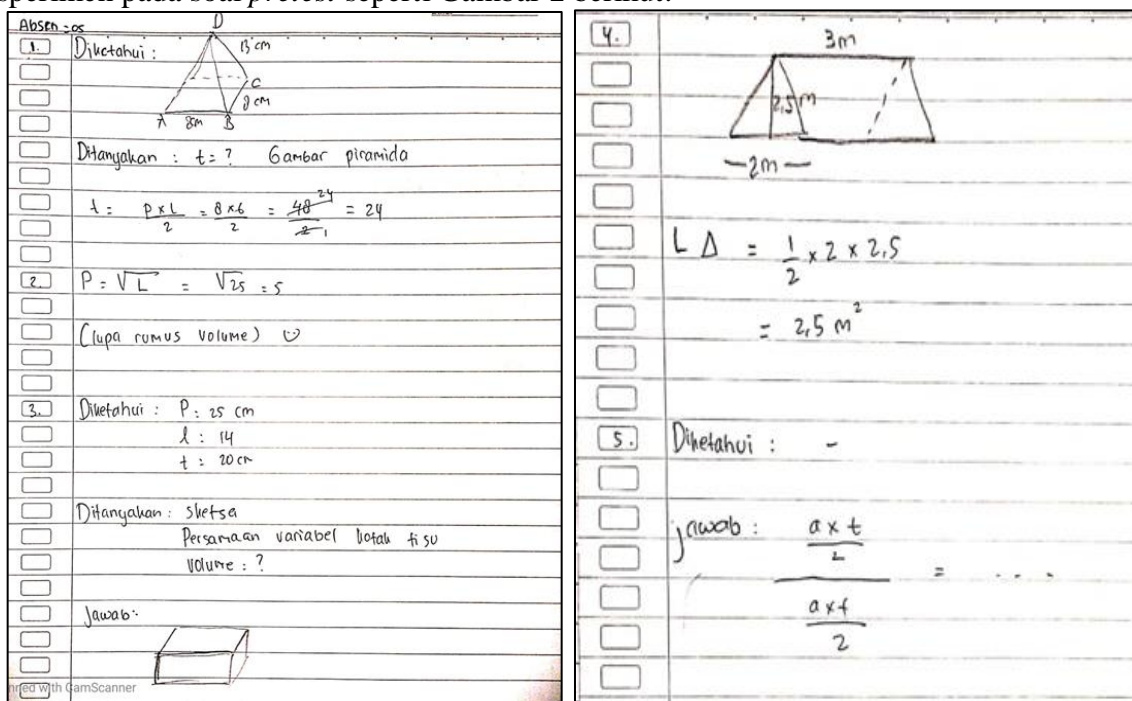 Absen = 05
1. Diketahui :
D
13 cm
C
8 cm
A 8m B
Ditanyakan : t = ? Gambar piramida
t = P x L / 2 = 8 x 6 / 2 = 48 24 / 2 1 = 24
2. P = √L = √25 = 5
(lupa rumus volume)
3. Diketahui : P : 25 cm
l : 14
t : 20 cm
Ditanyakan : sketsa
Persamaan variabel kotak tisu
Volume : ?
Jawab :
nned with CamScanner
4.
3m
2,5 m
— 2m —
L Δ = 1/2 x 2 x 2,5
= 2,5 m²
5. Diketahui : -
jawab : a x t / 2
= ....
a x t / 2